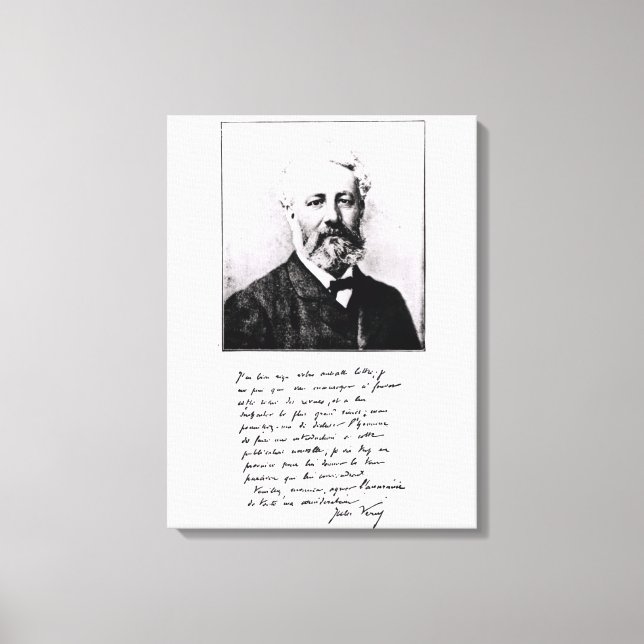 J'ai bien reçu votre nouvelle lettre, je
ne puis que vous encourager à fonder
cette revue des revues, et à lui
souhaiter le plus grand succès ; mais
permettez-moi de décliner l'honneur
de faire une introduction à cette
publication nouvelle, je suis
pour lui donner le
que lui
Veuillez, monsieur, agréer l'assurance
de toute ma considération
Jules Verne